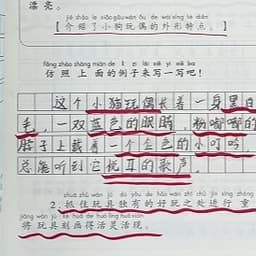 漂亮。
jiè shào le xiǎo gǒu wán ǒu de wài xíng tè diǎn
【介绍了小狗玩偶的外形特点。】
fǎng zhào shàng miàn de lì zi lái xiě yì xiě ba
仿照上面的例子来写一写吧!
这个小狗玩偶长着一身黑白
毛,一双蓝色的眼睛,粉嘟嘟的
脖子上戴着一个金色的小叮咛
总能听到它悦耳的歌声。
zhuā zhù wán jù dú yǒu de hǎo wán zhī chù jìn xíng zhòng
2.抓住玩具独有的好玩之处进行重
jiāng wán jù kè huà de huó líng huó xiàn
将玩具刻画得活灵活现。